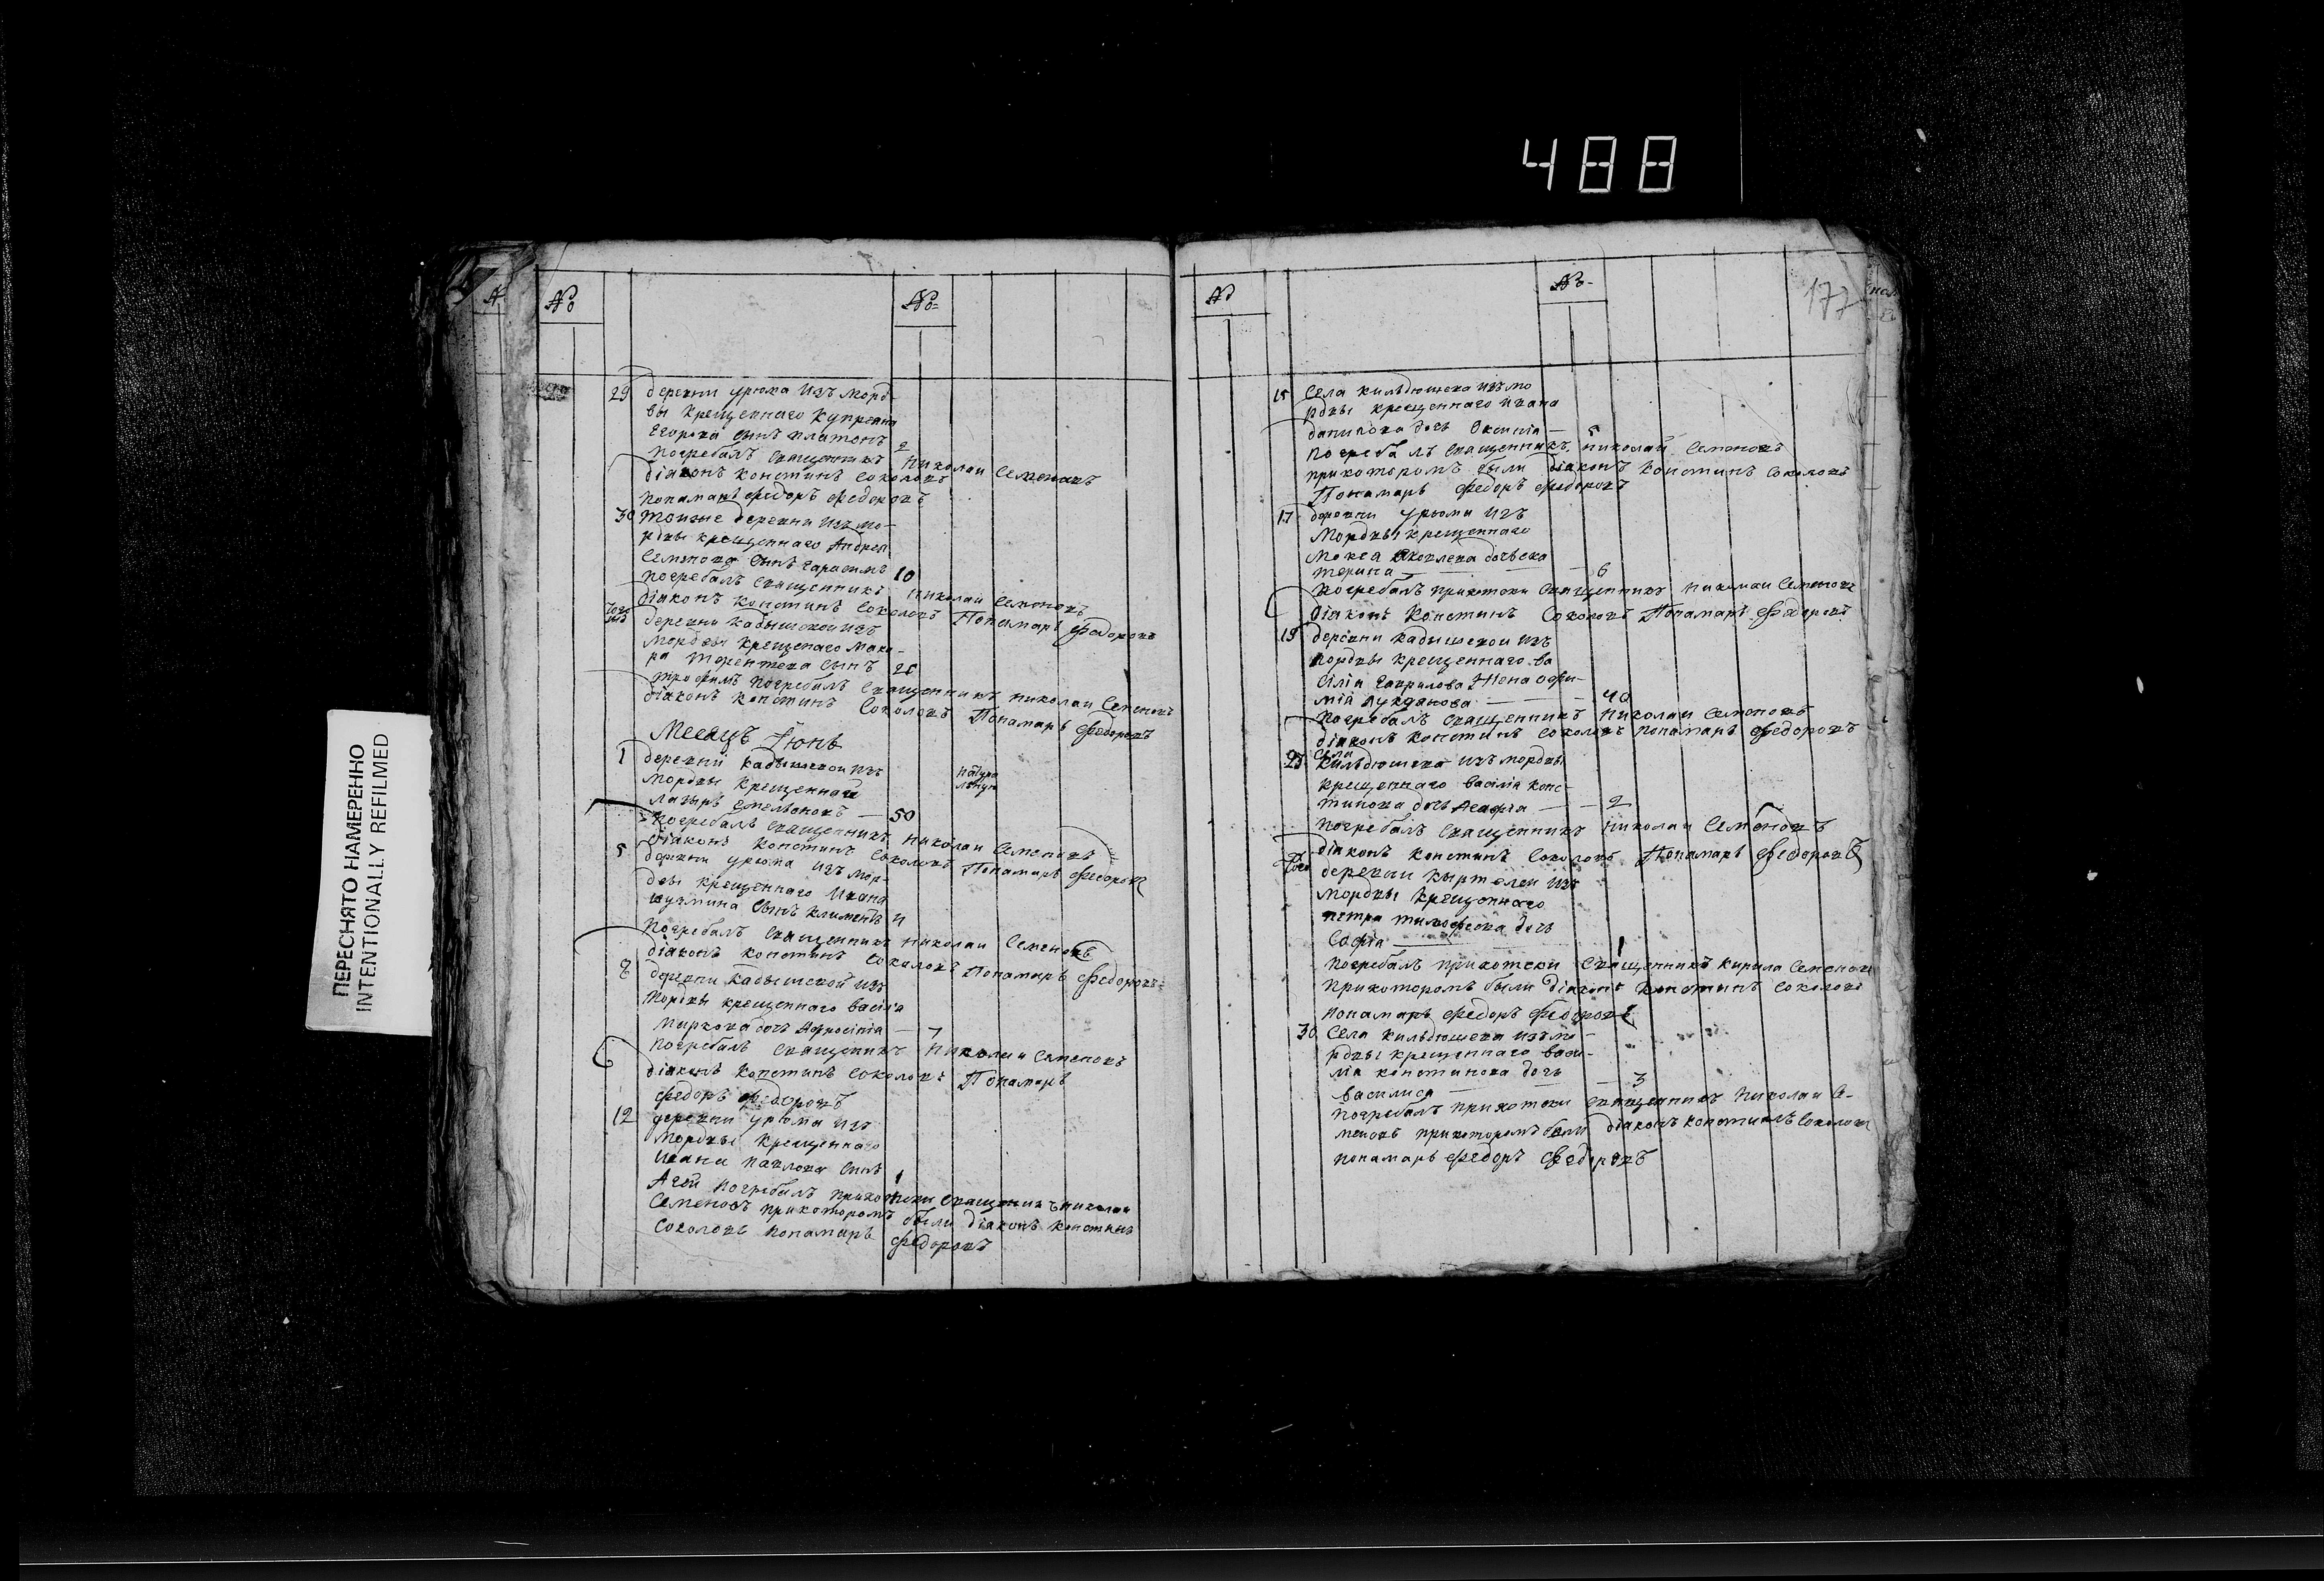 488
ПЕРЕСНЯТО НАМЕРЕННО
INTENTIONALLY REFILMED
№
№
29 деревни урюма Изъ Морд-
вы крещеннаго Куприяна
Егорова сынъ платонъ 2
погребалъ священникъ Николаи Семеновъ
діаконъ Констинъ Соколовъ
понамарь федоръ федоровъ
30 тоиже деревни изъ мо-
рдвы крещеннаго Андрея
Семенова сынъ гарасимъ 10
погребалъ священникъ Николаи Семеновъ
діаконъ Констинъ Соколовъ Понамарь федоровъ
деревни кадышевои изъ
мордвы крещенаго Мака-
ра терентева сынъ
трофимъ погребалъ священникъ николаи Семеновъ
діаконъ Констинъ Соколовъ Понамарь федоровъ
Месяцъ Іюнь
1 деревни кадышевои изъ
мордвы крещеннаго
лазырь емельяновъ — 50
погребалъ священникъ Николаи Семеновъ
діаконъ Констинъ Соколовъ Понамарь федоровъ
5 деревни урюма изъ мор-
двы крещеннаго Ивана
сынъ климентъ
погребалъ священникъ николаи Семеновъ
діаконъ констинъ Соколовъ Понамарь федоровъ
8 деревни кадышевой изъ
мордвы крещеннаго василія
маркова дочь Афросінія — 7
погребалъ священикъ Николаи Семеновъ
діаконъ констинъ Соколовъ Понамарь
федоръ федоровъ
12 деревни урюма изъ
мордвы крещеннаго
Ивана павлова сынъ
Агей погребалъ прихотски священикъ николаи 1
Семеновъ прикоторомъ были діаконъ констинъ
Соколовъ понамарь федоровъ
№
№
177
15 Села кильдюшева изъ мо
рдвы крещеннаго ивана
данилова дочь Оксинія — 5
погребалъ священникъ николай Семеновъ
прикоторомъ были діаконъ Констинъ Соколовъ
Понамарь федоръ федоровъ
17 деревни урюма изъ
мордвы крещеннаго
мокея яковлева дочь ека
терина — 6
погребалъ прихотски священникъ николаи Семеновъ
діаконъ Констинъ Соколовъ Понамарь федоровъ
19 деревни кадышевои изъ
мордвы крещеннаго ва
сілія гаврилова Жена офи-
мія лукіянова — 40
погребалъ священникъ Николаи Семеновъ
діаконъ констинъ соколовъ понамарь федоровъ
Села
кильдюшева изъ мордвы
крещеннаго василія конс-
тинова дочь Агафія — 2
погребалъ священникъ николаи Семеновъ
діаконъ констинъ Соколовъ Понамарь федоровъ
деревни кыртелеи изъ
мордвы крещеннаго
петра тимофеева дочь
Софія — 1
погребалъ прихотски священникъ кирила Семеновъ
прикоторомъ были діаконъ констинъ Соколовъ
понамарь федоръ федоровъ
30 Села кильдюшева изъ мо-
рдвы крещеннаго васи-
лія констинова дочь
василиса — 3
погребалъ прихотски священникъ николаи Се-
меновъ прикоторомъ были діаконъ констинъ Соколовъ
понамарь федоръ федоровъ